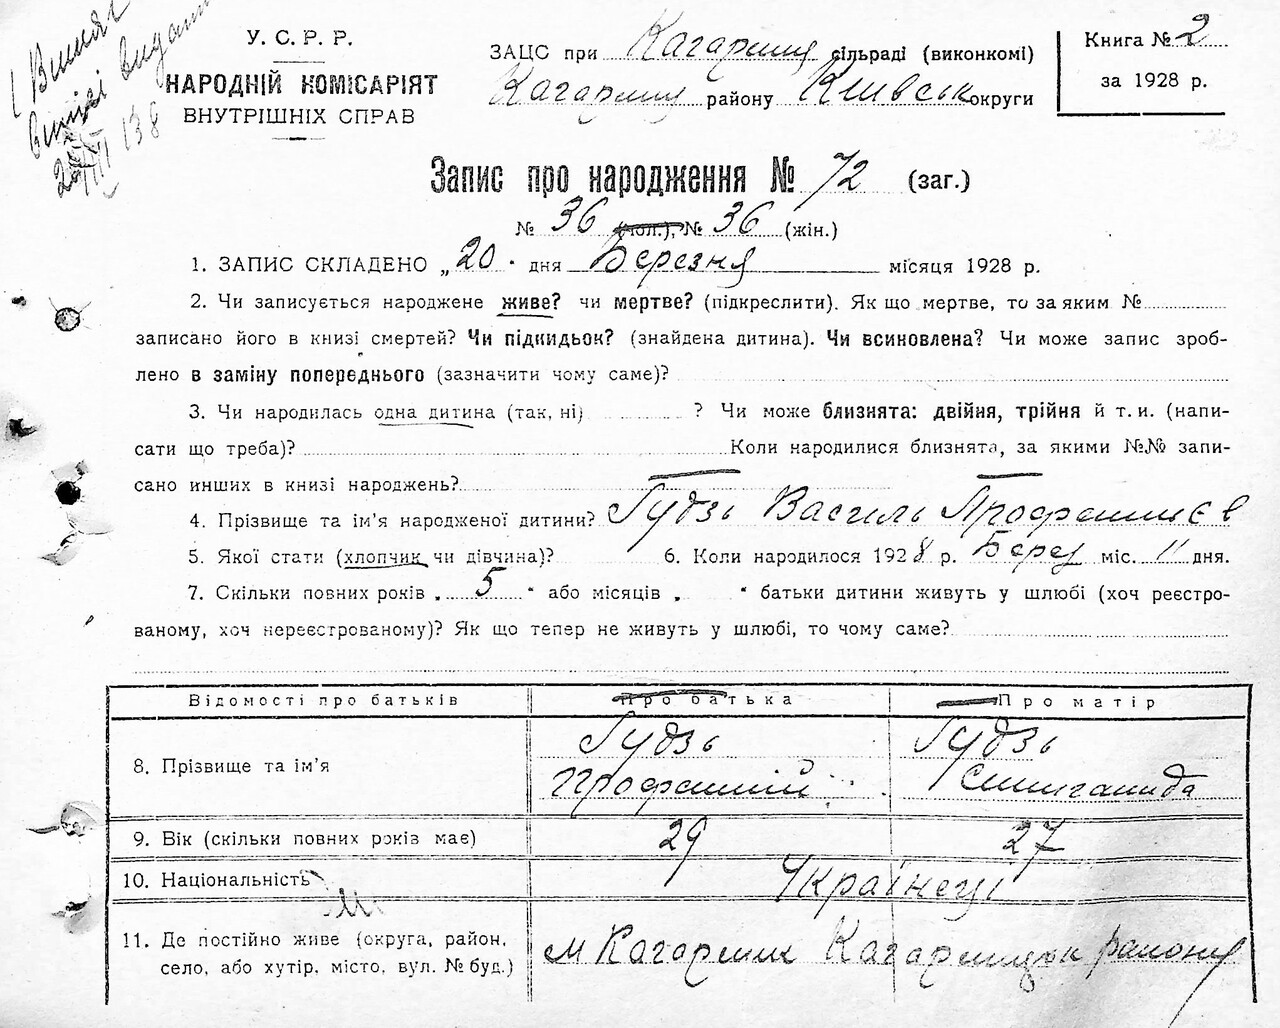 У. С. Р. Р.
НАРОДНІЙ КОМІСАРІЯТ
ВНУТРІШНІХ СПРАВ
ЗАЦС при Кагарлиц сільраді (виконкомі)
Кагарлиц району Київськ округи
Книга № 2
за 1928 р.
видати
Запис про народження № 72 (заг.)
№ 36 (чол.), № 36 (жін.)
1. ЗАПИС СКЛАДЕНО „20" дня Березня місяця 1928 р.
2. Чи записується народжене живе? чи мертве? (підкреслити). Як що мертве, то за яким №
записано його в книзі смертей? Чи підкидьок? (знайдена дитина). Чи всиновлена? Чи може запис зроб-
лено в заміну попереднього (зазначити чому саме)?
3. Чи народилась одна дитина (так, ні) ? Чи може близнята: двійня, трійня й т. и. (напи-
сати що треба)? Коли народилися близнята, за якими №№ запи-
сано инших в книзі народжень?
4. Прізвище та ім'я народженої дитини? Гудзь Василь
5. Якої стати (хлопчик чи дівчина)? 6. Коли народилося 1928 р. Берез міс. 11 дня.
7. Скільки повних років „ 5 " або місяців „ " батьки дитини живуть у шлюбі (хоч реєстро-
ваному, хоч нереєстрованому)? Як що тепер не живуть у шлюбі, то чому саме?
Відомості про батьків Про батька Про матір
8. Прізвище та ім'я Гудзь Гудзь
9. Вік (скільки повних років має) 29 27
10. Національність Українєці
11. Де постійно живе (округа, район,
село, або хутір, місто, вул. № буд.) м Кагарлик Кагарлицьк району